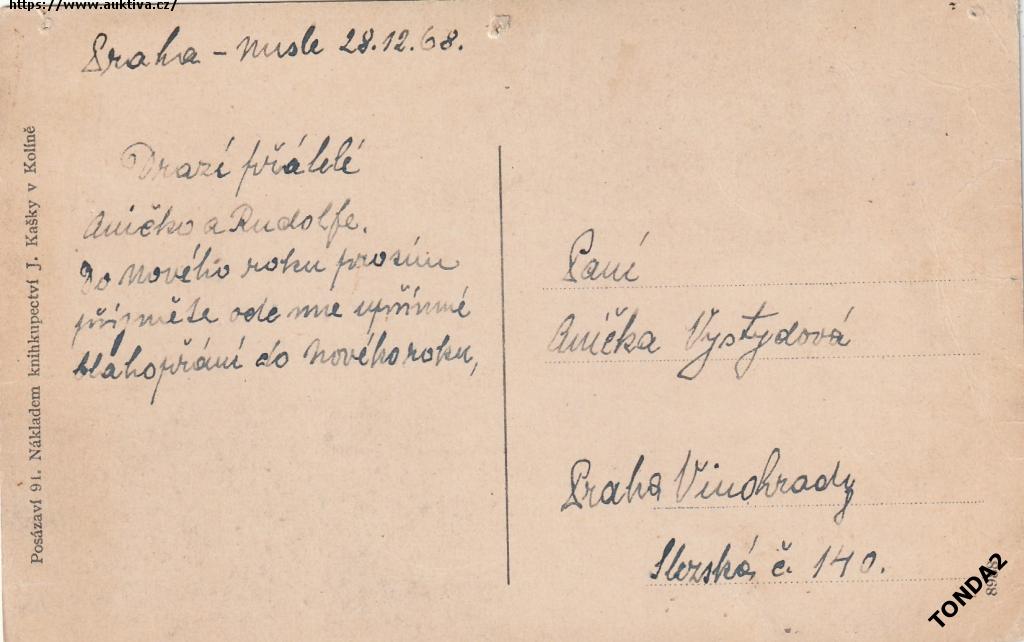 https://www.auktiva.cz/
Praha - Nusle 28.12.68.
Drazí přátelé
Aničko a Rudolfe.
Do Nového roku prosím
přijměte ode mne upřímné
blahopřání do Nového roku,
Paní
Anička Vystydová
Praha Vinohrady
Slezská, č. 140.
Posázaví 91. Nákladem knihkupectví J. Kašky v Kolíně
TONDA2